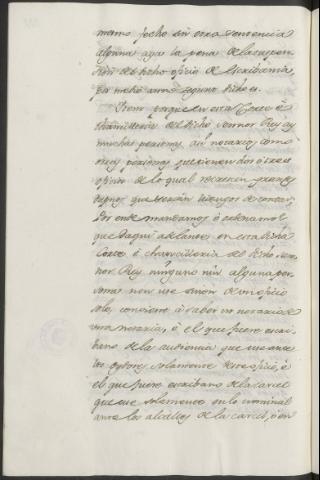 mismo fecho sin otra sentencia
alguna aya la pena de la suspen
sion del dicho oficio de Escribania,
por medio anno segund dicho es.
Item porque en esta Corte è
Chancilleria del dicho sennor Rey ay
muchas personas, asi notarios como
otras personas que tienen dos ò tres
oficios de lo qual recrescen grandes
dapnos que serian luengos de contar,
Por ende mandamos è ordenamos
que daqui adelante en esta dicha
Corte è chancilleria del dicho sen-
nor Rey ninguno nin alguna per
sona non use sinon de un oficio
solo, conviene à saber un notario de
una notaria, è el que fuere escri-
bano de la audiencia que use ante
los oydores solamente de ese oficio, è
el que fuere escribano de la carcel
que use solamente en lo criminal
ante los alcalles de la carcel, è en